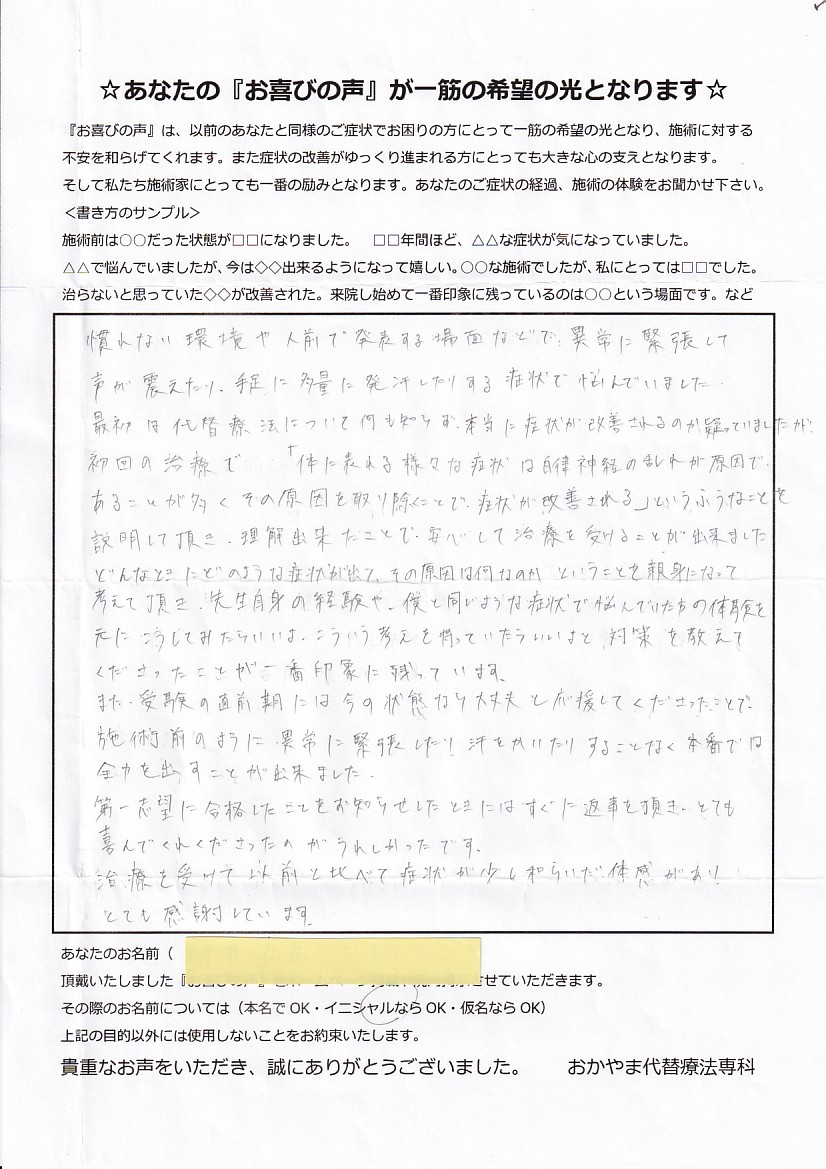 ☆あなたの『お喜びの声』が一筋の希望の光となります☆
『お喜びの声』は、以前のあなたと同様のご症状でお困りの方にとって一筋の希望の光となり、施術に対する
不安を和らげてくれます。また症状の改善がゆっくり進まれる方にとっても大きな心の支えとなります。
そして私たち施術家にとっても一番の励みとなります。あなたのご症状の経過、施術の体験をお聞かせ下さい。
＜書き方のサンプル＞
施術前は○○だった状態が□□になりました。　□□年間ほど、△△な症状が気になっていました。
△△で悩んでいましたが、今は◇◇出来るようになって嬉しい。○○な施術でしたが、私にとっては□□でした。
治らないと思っていた◇◇が改善された。来院し始めて一番印象に残っているのは○○という場面です。など
慣れない環境や人前で発表する場面などで、異常に緊張して
声が震えたり、手足に多量に発汗したりする症状で悩んでいました。
最初は代替療法について何も知らず、本当に症状が改善されるのか疑っていましたが、
初回の治療で「体に表れる様々な症状は自律神経の乱れが原因で
あることが多くその原因を取り除くことで、症状が改善される」というふうなことを
説明して頂き、理解出来たことで、安心して治療を受けることが出来ました
どんなときにどのような症状が出て、その原因は何なのかということを親身になって
考えて頂き、先生自身の経験や、僕と同じような症状で悩んでいた方の体験を
元にこうしてみたらいいよ、こういう考えを持っていたらいいよと対策を教えて
くださったことが一番印象に残っています。
また、受験の直前期には今の状態なら大丈夫と応援してくださったことで、
施術前のように異常に緊張したり、汗をかいたりすることなく本番では
全力を出すことが出来ました。
第一志望に合格したことをお知らせしたときにはすぐに返事を頂き、とても
喜んでくれくださったのがうれしかったです。
治療を受けて以前と比べて症状が少し和らいだ体感があり、
とても感謝しています。
あなたのお名前（
頂戴いたしました『お喜びの声』をホームさせていただきます。
その際のお名前については（本名でOK・イニシャルならOK・仮名ならOK）
上記の目的以外には使用しないことをお約束いたします。
貴重なお声をいただき、誠にありがとうございました。　　おかやま代替療法専科